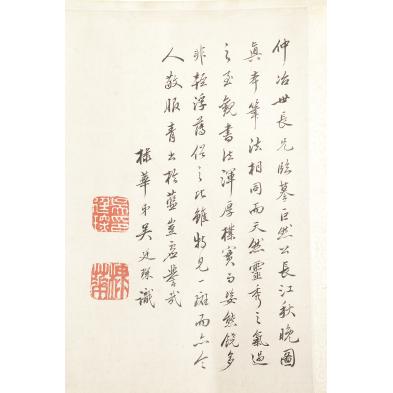 仲冶世長兄臨摹巨然公長江秋晚圖
真本筆法相同而天然靈秀之氣過
之至觀書法渾厚樸實而姿態饒多
非輕浮薄俗之比雖特見一斑而亦令
人敬服青出於藍豈虛譽哉
棣華弟吳廷琛識